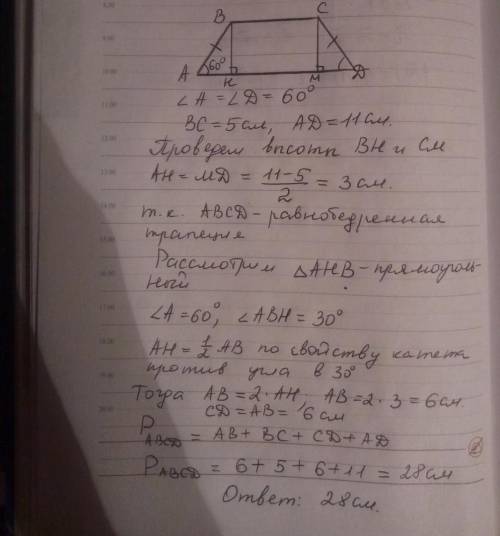 B C
60°
A H M D
∠A = ∠D = 60°
BC = 5 см, AD = 11 см.
Проведем высоты BH и CM
AH = MD = \frac{11-5}{2} = 3 см.
т.к. ABCD - равнобедренная
трапеция
Рассмотрим △AHB - прямоуголь-
ный
∠A = 60°, ∠ABH = 30°
AH = \frac{1}{2} AB по свойству катета
против угла в 30°
Тогда AB = 2 · AH, AB = 2 · 3 = 6 см.
CD = AB = 6 см
P ABCD = AB + BC + CD + AD
P ABCD = 6 + 5 + 6 + 11 = 28 см
Ответ: 28 см.